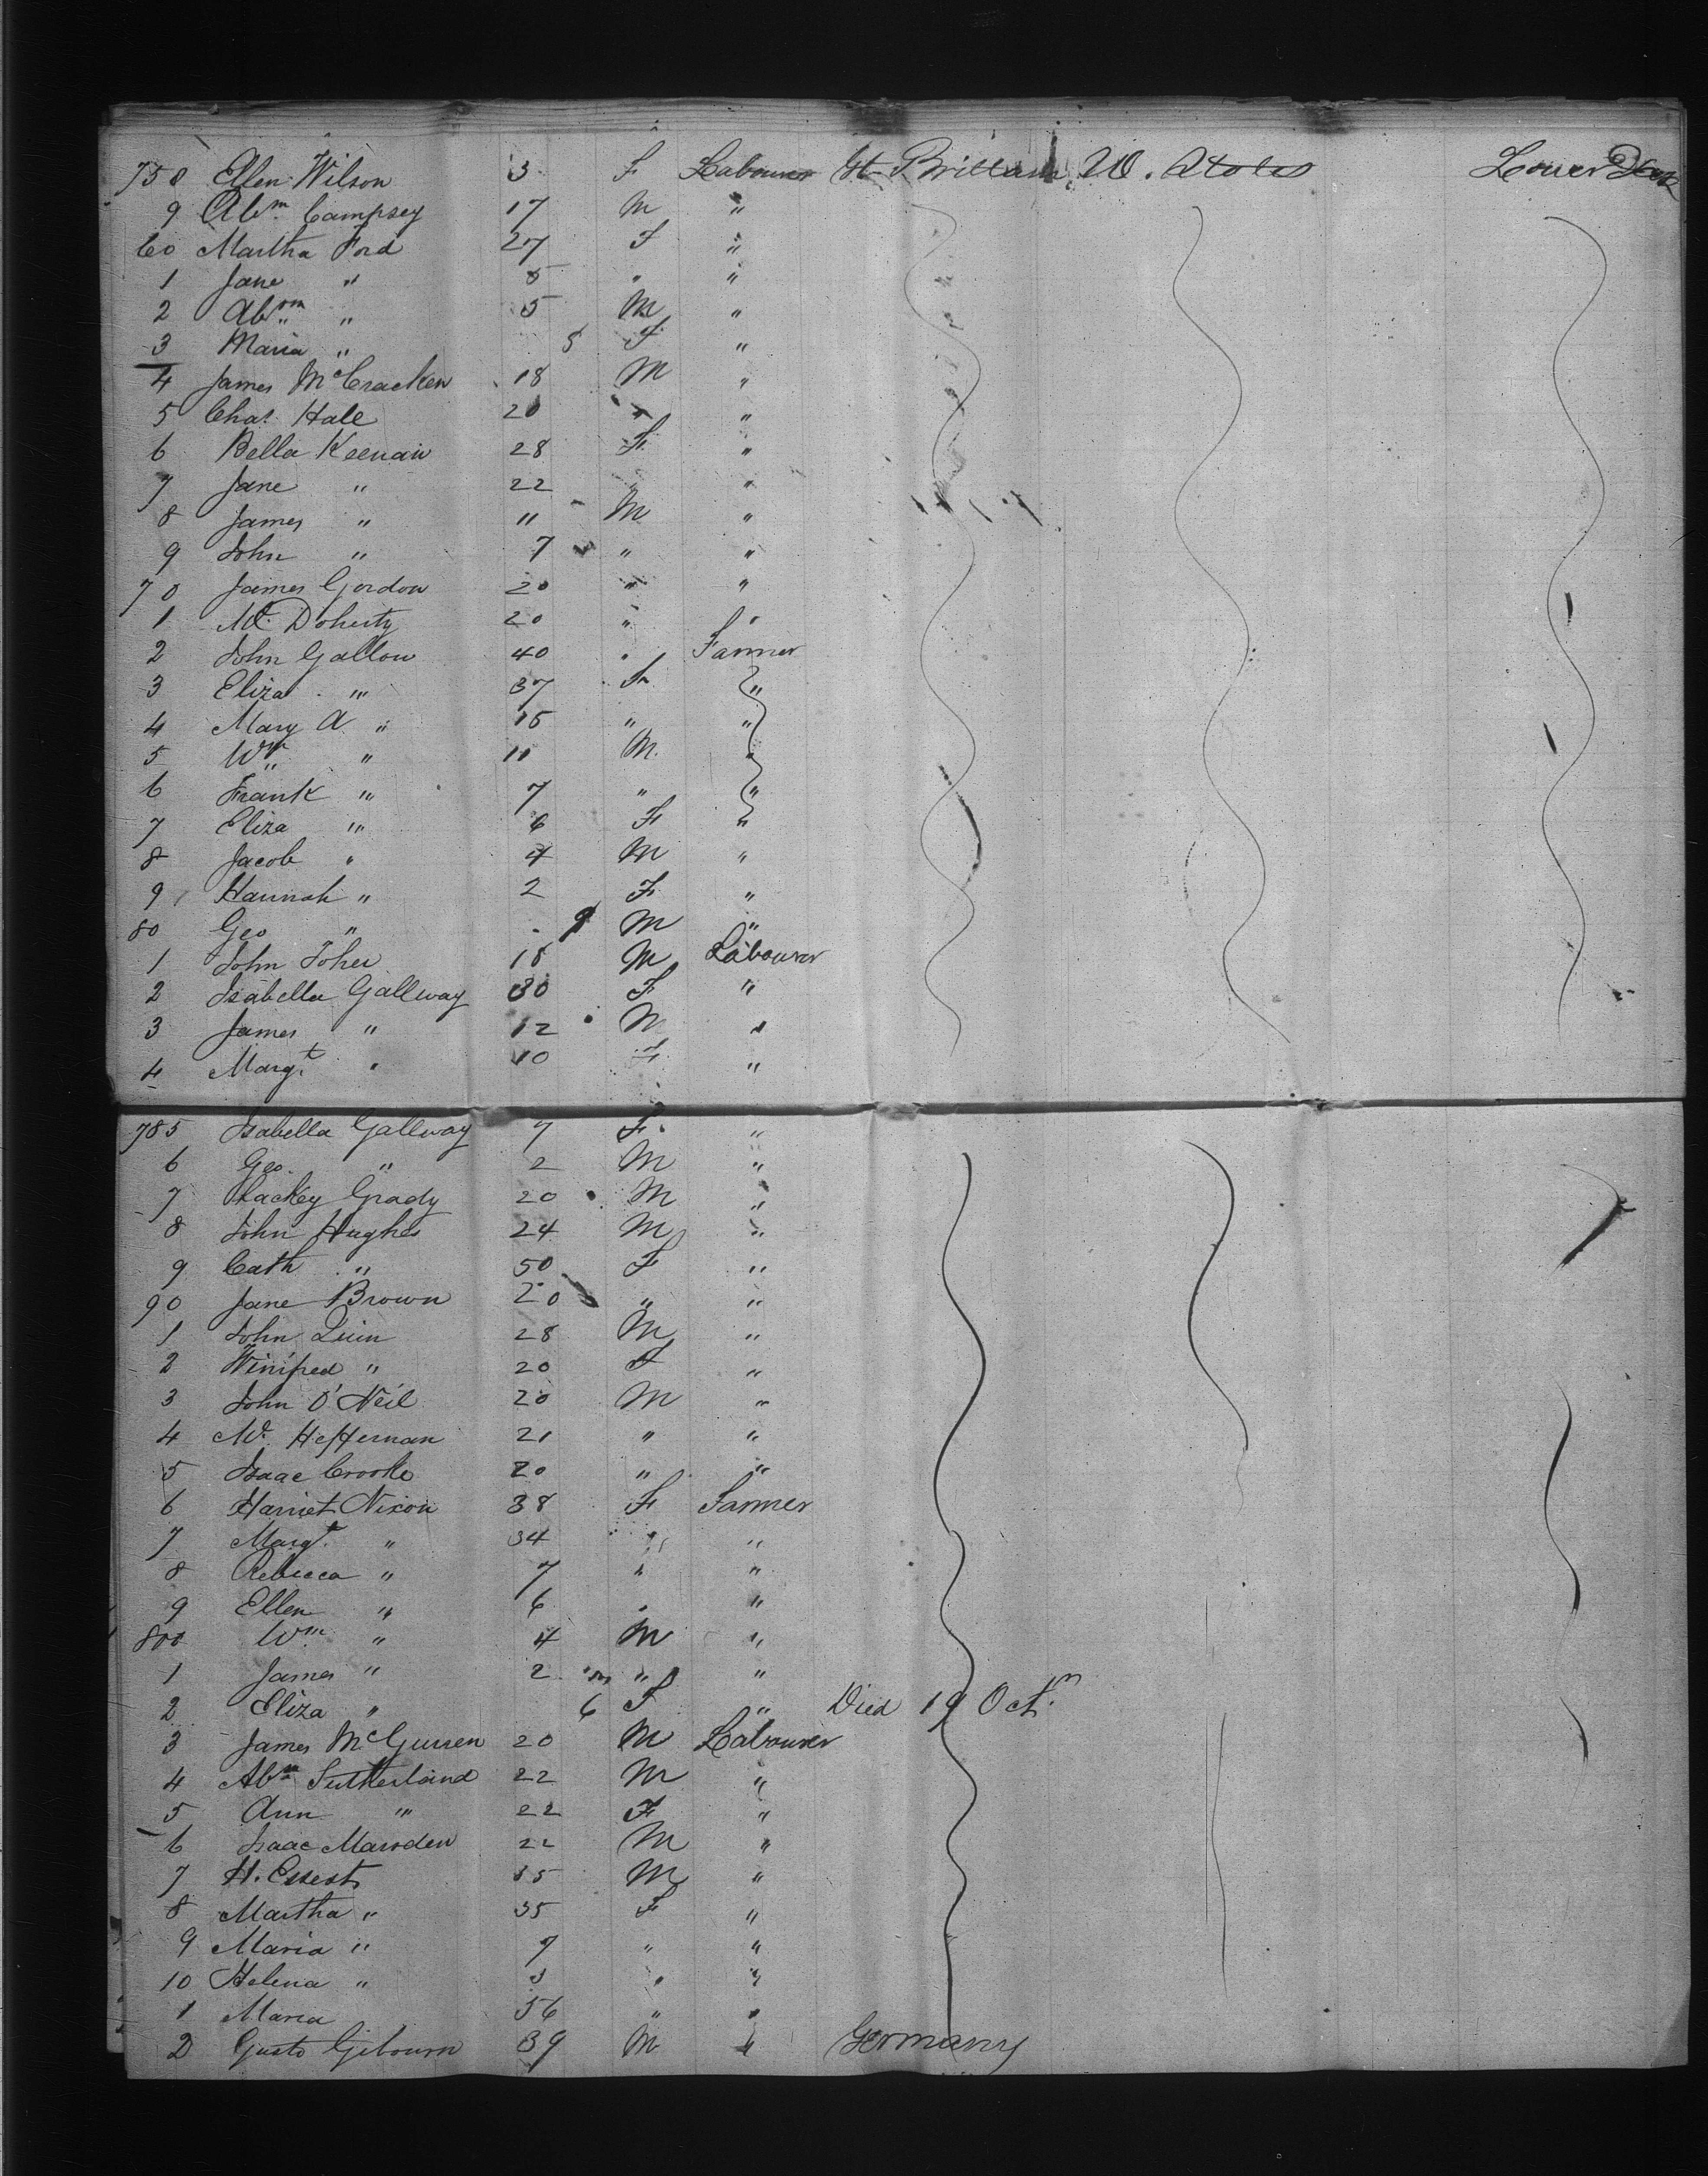 758 Ellen Wilson 3 F Labourer Gt. Brittain U. States Lower Deck
9 Abm Campsey 17 M "
60 Martha Ford 27 F "
1 Jane " 8 " "
2 Abm " 5 M "
3 Maria " 8 F "
4 James McCracken 18 M "
5 Chas. Hale 20 " "
6 Bella Keenan 28 F "
7 Jane " 22 " "
8 James " 11 M "
9 John " 7 " "
70 James Gordon 20 " "
1 Doherty 20 " "
2 John Gallow 40 " Farmer
3 Eliza " 37 F "
4 Mary A " 15 " "
5 Wm " 11 M "
6 Frank " 7 " "
7 Eliza " 6 F "
8 Jacob " 4 M "
9 Hannah " 2 F "
80 Geo " 9 M "
1 John Toher 18 M Labourer
2 Isabella Gallway 30 F "
3 James " 12 M "
4 Margt " 10 F "
785 Isabella Gallway 7 F "
6 Geo. " 2 M "
7 Lackey Grady 20 M "
8 John Hughes 24 M "
9 Cath " 50 F "
90 Jane Brown 20 " "
1 John Quin 28 M "
2 Winifred " 20 F "
3 John O'Neil 20 M "
4 Heffernan 21 " "
5 Isaac Crooke 20 " "
6 Harriet Nixon 38 F Farmer
7 Margt " 34 " "
8 Rebecca " 7 " "
9 Ellen " 6 " "
800 Wm " 4 M "
1 James " 2 " "
2 Eliza " 6 F " Died 19 Oct.
3 James McGurren 20 M Labourer
4 Abm Sutherland 22 M "
5 Ann " 22 F "
6 Isaac Marsden 22 M "
7 H. 35 M "
8 Martha " 35 F "
9 Maria " 7 " "
10 Helena " 3 " "
1 Maria 56 " "
2 Gusto 39 M " Germany